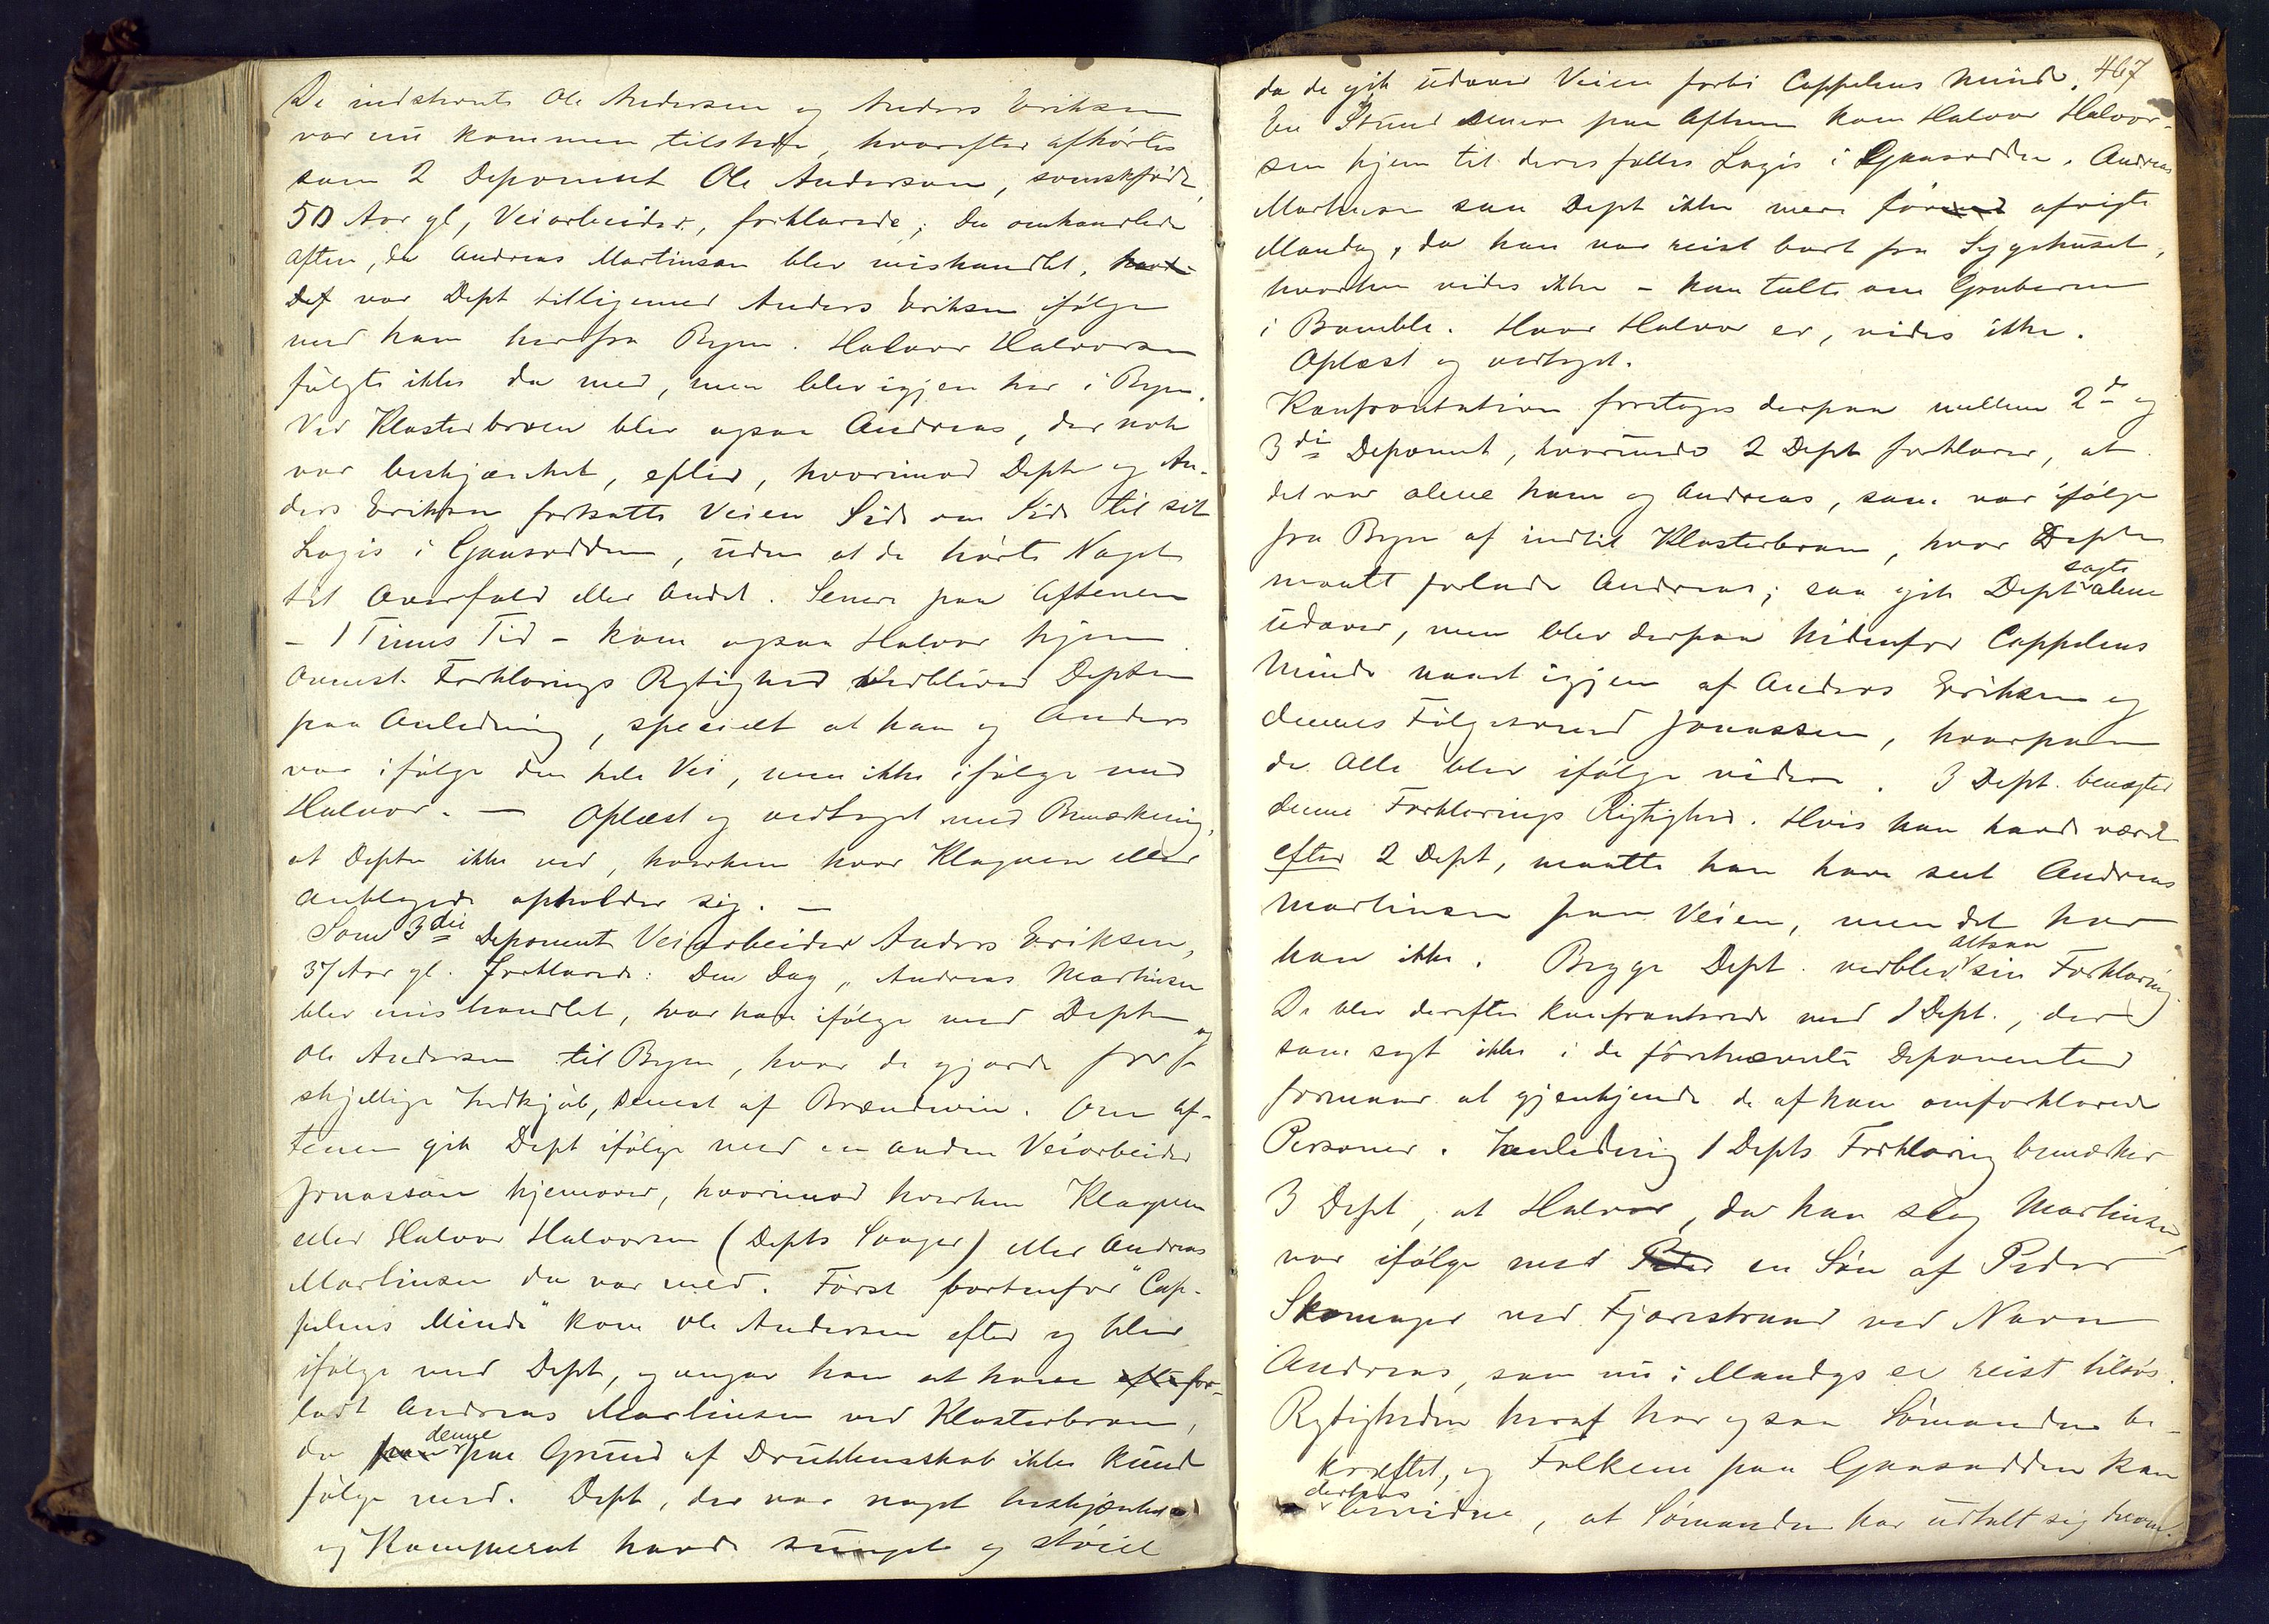 De indstevnte Ole Andersen og Anders Eriksen
var nu kommen tilstede, hvorefter afhørtes
som 2 Deponent Ole Anderson, svenskfødt,
50 Aar gl, Veiarbeider, forklarede; den omhandlede
Aften, da Andreas Martinsen blev mishandlet,
var Dept tilligemed Anders Eriksen ifølge
med ham herfra Byen. Halvor Halvorsen
fulgte ikke da med, men blev igjen her i Byen.
Ved Klosterbroen blev ogsaa Andreas, der nok
var beskjænket, efter, hvorimod Deptn og An-
ders Eriksen fortsatte Veien Side om Side til sit
Logis i Gaasodden, uden at de hørte Noget
til Overfald eller Andet. Senere paa Aftenen
- 1 Times Tid - kom ogsaa Halvor hjem.
Ovenst. Forklarings Rigtighed vedbliver Deptn
paa Anledning, specielt at han og Anders
var ifølge den hele Vei, men ikke ifølge med
Halvor. — Oplæst og vedtaget med Bemærkning,
at Deptn ikke ved, hverken hvor Klageren eller
Anklagede opholder sig. —
Som 3die Deponent Veiarbeider Anders Eriksen,
37 Aar gl. forklarede: Den Dag, Andreas Martinsen
blev mishandlet, var han ifølge med Deptn og
Ole Andersen til Byen, hvor de gjorde for-
skjellige Indkjøb, deriblandt af Brændevin. Om Af-
tenen gik Dept ifølge med en anden Veiarbeider
Jonasson hjemover, hvorimod hverken Klageren
eller Halvor Halvorsen (Depts Svoger) eller Andreas
Martinsen da var med. Først bortenfor "Cap-
pelens Minde" kom Ole Andersen efter og blev
ifølge med Dept, og angav han at have for-
ladt Andreas Martinsen ved Klosterbroen,
da denne paa Grund af Drukkenskab ikke kunde
følge med. Dept, der var noget beskjænket
og Kameraat havde sunget og støiet
467
da de gik udover Veien forbi Cappelens Minde.
En Stund senere paa Aftenen kom Halvor Halvor-
sen hjem til deres fælles Logis i Gaasodden. Andreas
Martinsen saa Dept ikke mere før afvigte
Mandag, da han var reist bort fra Sygehuset,
hvorhen vides ikke - han talte om Gruberne
i Bamble. Hvor Halvor er, vides ikke.
Oplæst og vedtaget.
Konfrontation foretoges derpaa mellem 2den og
3die Deponent, hvorunder 2 Dept forklarer, at
det var alene ham og Andreas, som var ifølge
fra Byen af indtil Klosterbroen, hvor Deptn
maatte forlade Andreas; saa gik Dept sagte alene
udover, men blev derpaa hidenfor Cappelens
Minde naaet igjen af Anders Eriksen og
dennes Følgesvend Jonassen, hvorpaa
de Alle blev ifølge videre. 3 Dept. benægter
denne Forklarings Rigtighed. Hvis han havde været
efter 2 Dept, maatte han have seet Andreas
Martinsen paa Veien, men det har
han ikke. Begge Dept. vedblev altsaa sin Forklaring.
De blev derefter konfronterede med 1 Dept., der
som sagt ikke i de førstnævnte Deponenter
formaar at gjenkjende de af ham omforklarede
Personer. I Anledning 1 Depts Forklaring bemærker
3 Dept, at Halvor, da han slog Martinsen,
var ifølge med en Søn af Peder
Skomager ved Fjærestrand ved Navn
Andreas, som nu i Mandags er reist tilsøs.
Rigtigheden heraf har ogsaa Sømanden be-
kræftet, og Folkene paa Gaasodden kan
derhos bevidne, at Sømanden har udtalt sig derom.